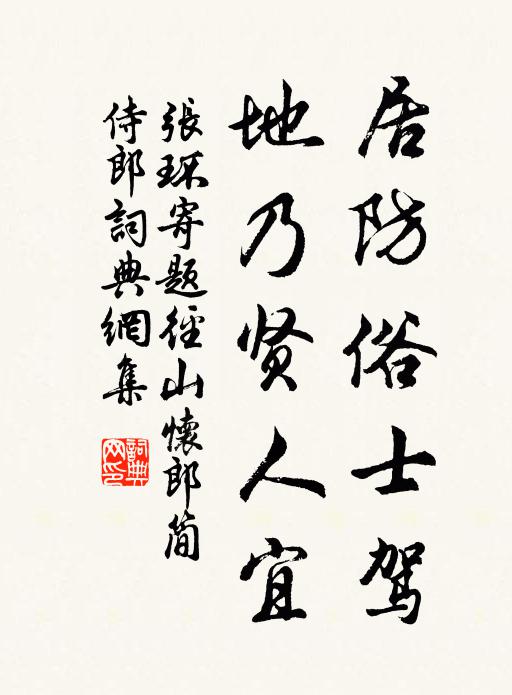 居防俗士駕
地乃贤人宜
張琛寄题徑山懷郎簡
侍郎詞典網集
詞典網印